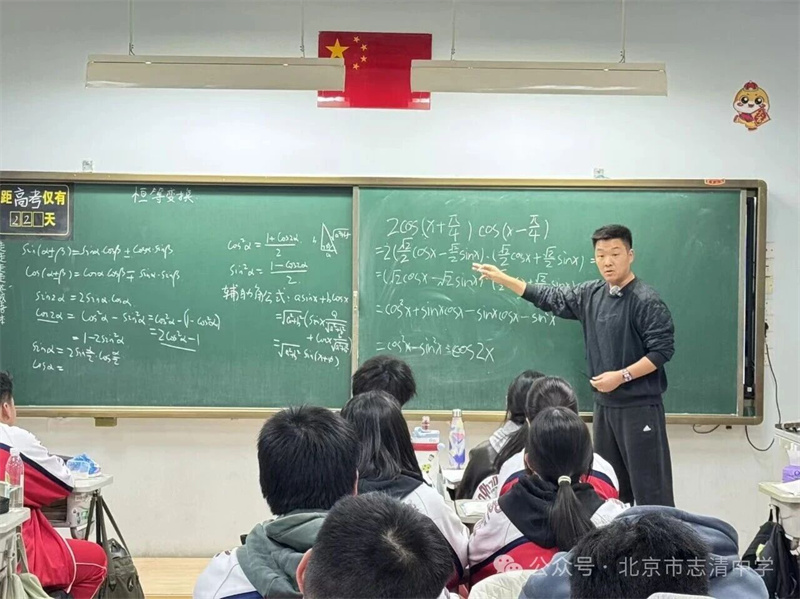 距高考仅有
221天
恒等变换
sin(α±β)=sinα cosβ±cosα·sinβ
cos(α±β)=cosα cosβ∓sinα·sinβ
sin2α=2sinα cosα
cos2α=cos²α-sin²α=cos²α-(1-cos²α)
=1-2sin²α
=2cos²α-1
sinα=2sin α/2 cos α/2
cosα=
cos²α=(1+cos2α)/2
sin²α=(1-cos2α)/2
辅助角公式:asinx+bcosx
=√(a²+b²)(sinx a/√(a²+b²)
+cosx b/√(a²+b²)
=√(a²+b²) sin(x+φ)
2cos(x+π/4)cos(x-π/4)
=2(√2/2 cosx-√2/2 sinx)·(√2/2 cosx+√2/2 sinx)
=(√2cosx-√2sinx)
=cos²x+sinxcosx-sinxcosx-sin²x
=cos²x-sin²x=cos2x
公众号·北京市志清中学